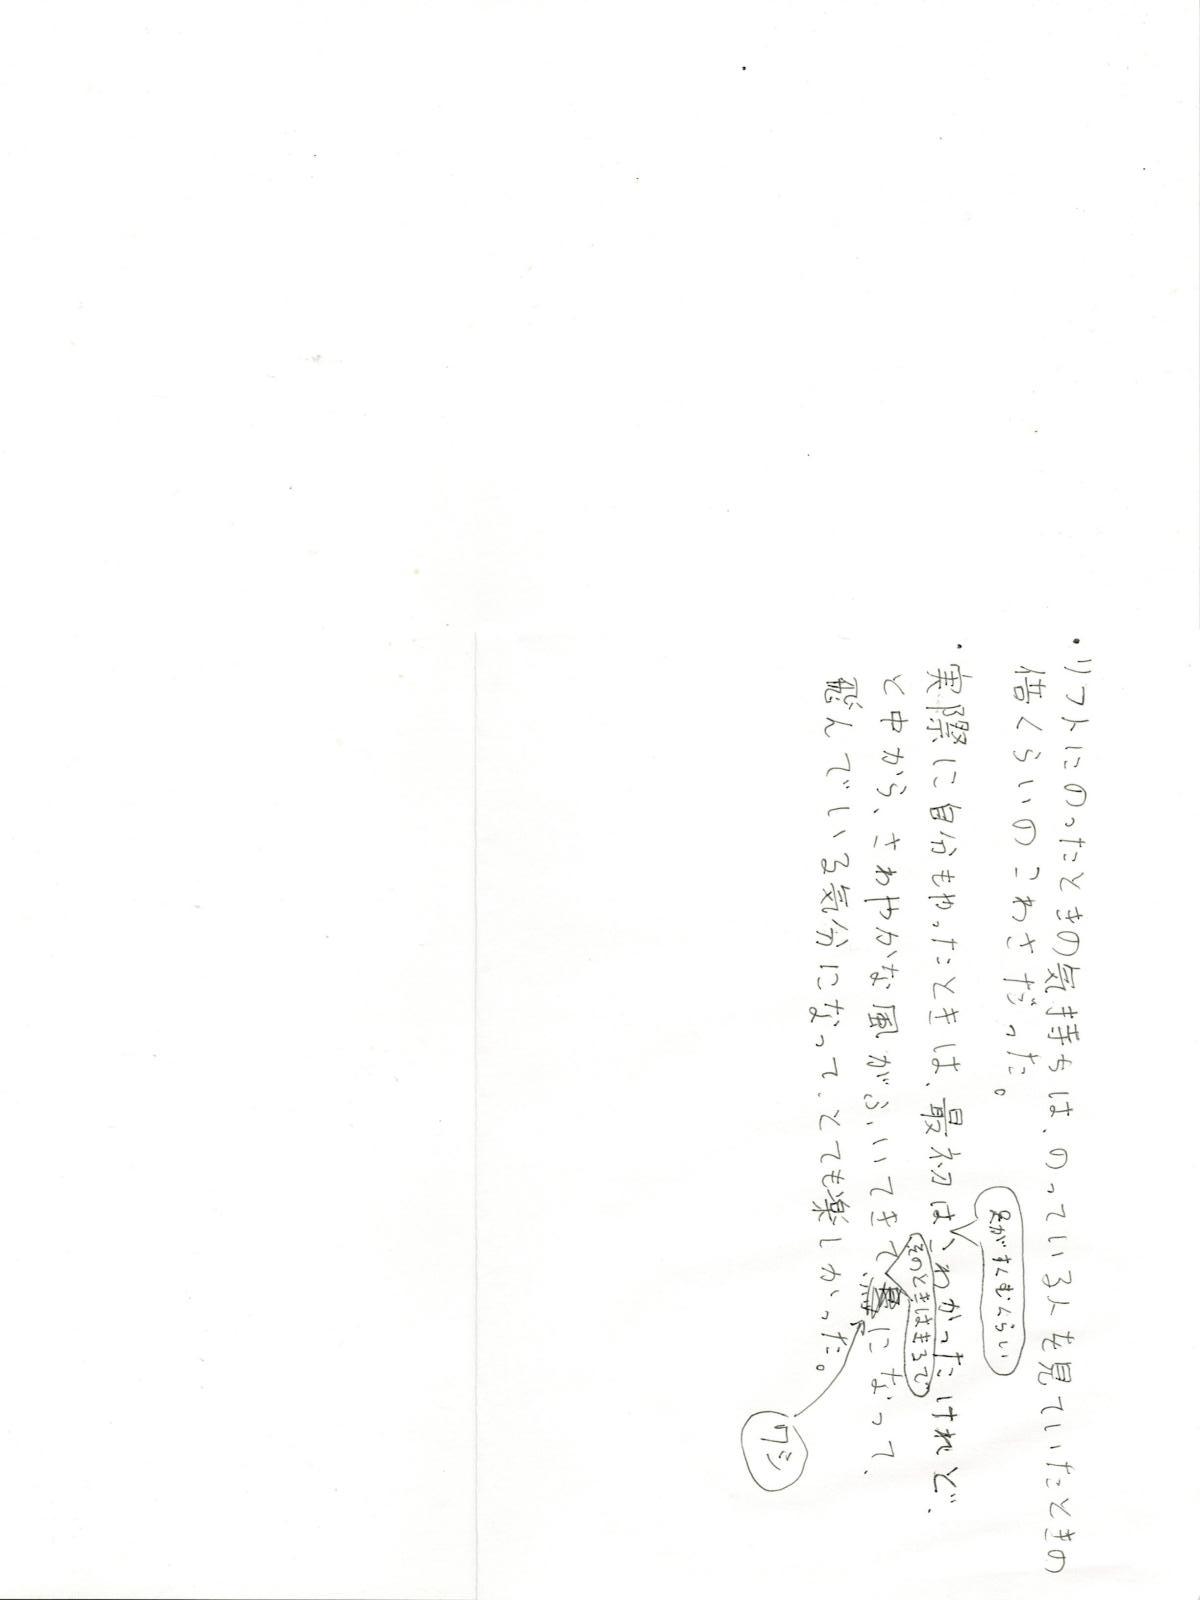 ・リフトにのったときの気持ちは、のっている人を見ていたときの
倍くらいのこわさだった。
足がすくむくらい
・実際に自分もやったときは、最初はこわかったけれど、
そのときはまるで
と中から、さわやかな風がふいてきて、鳥になって、
飛んでいる気分になって、とても楽しかった。
ワシ